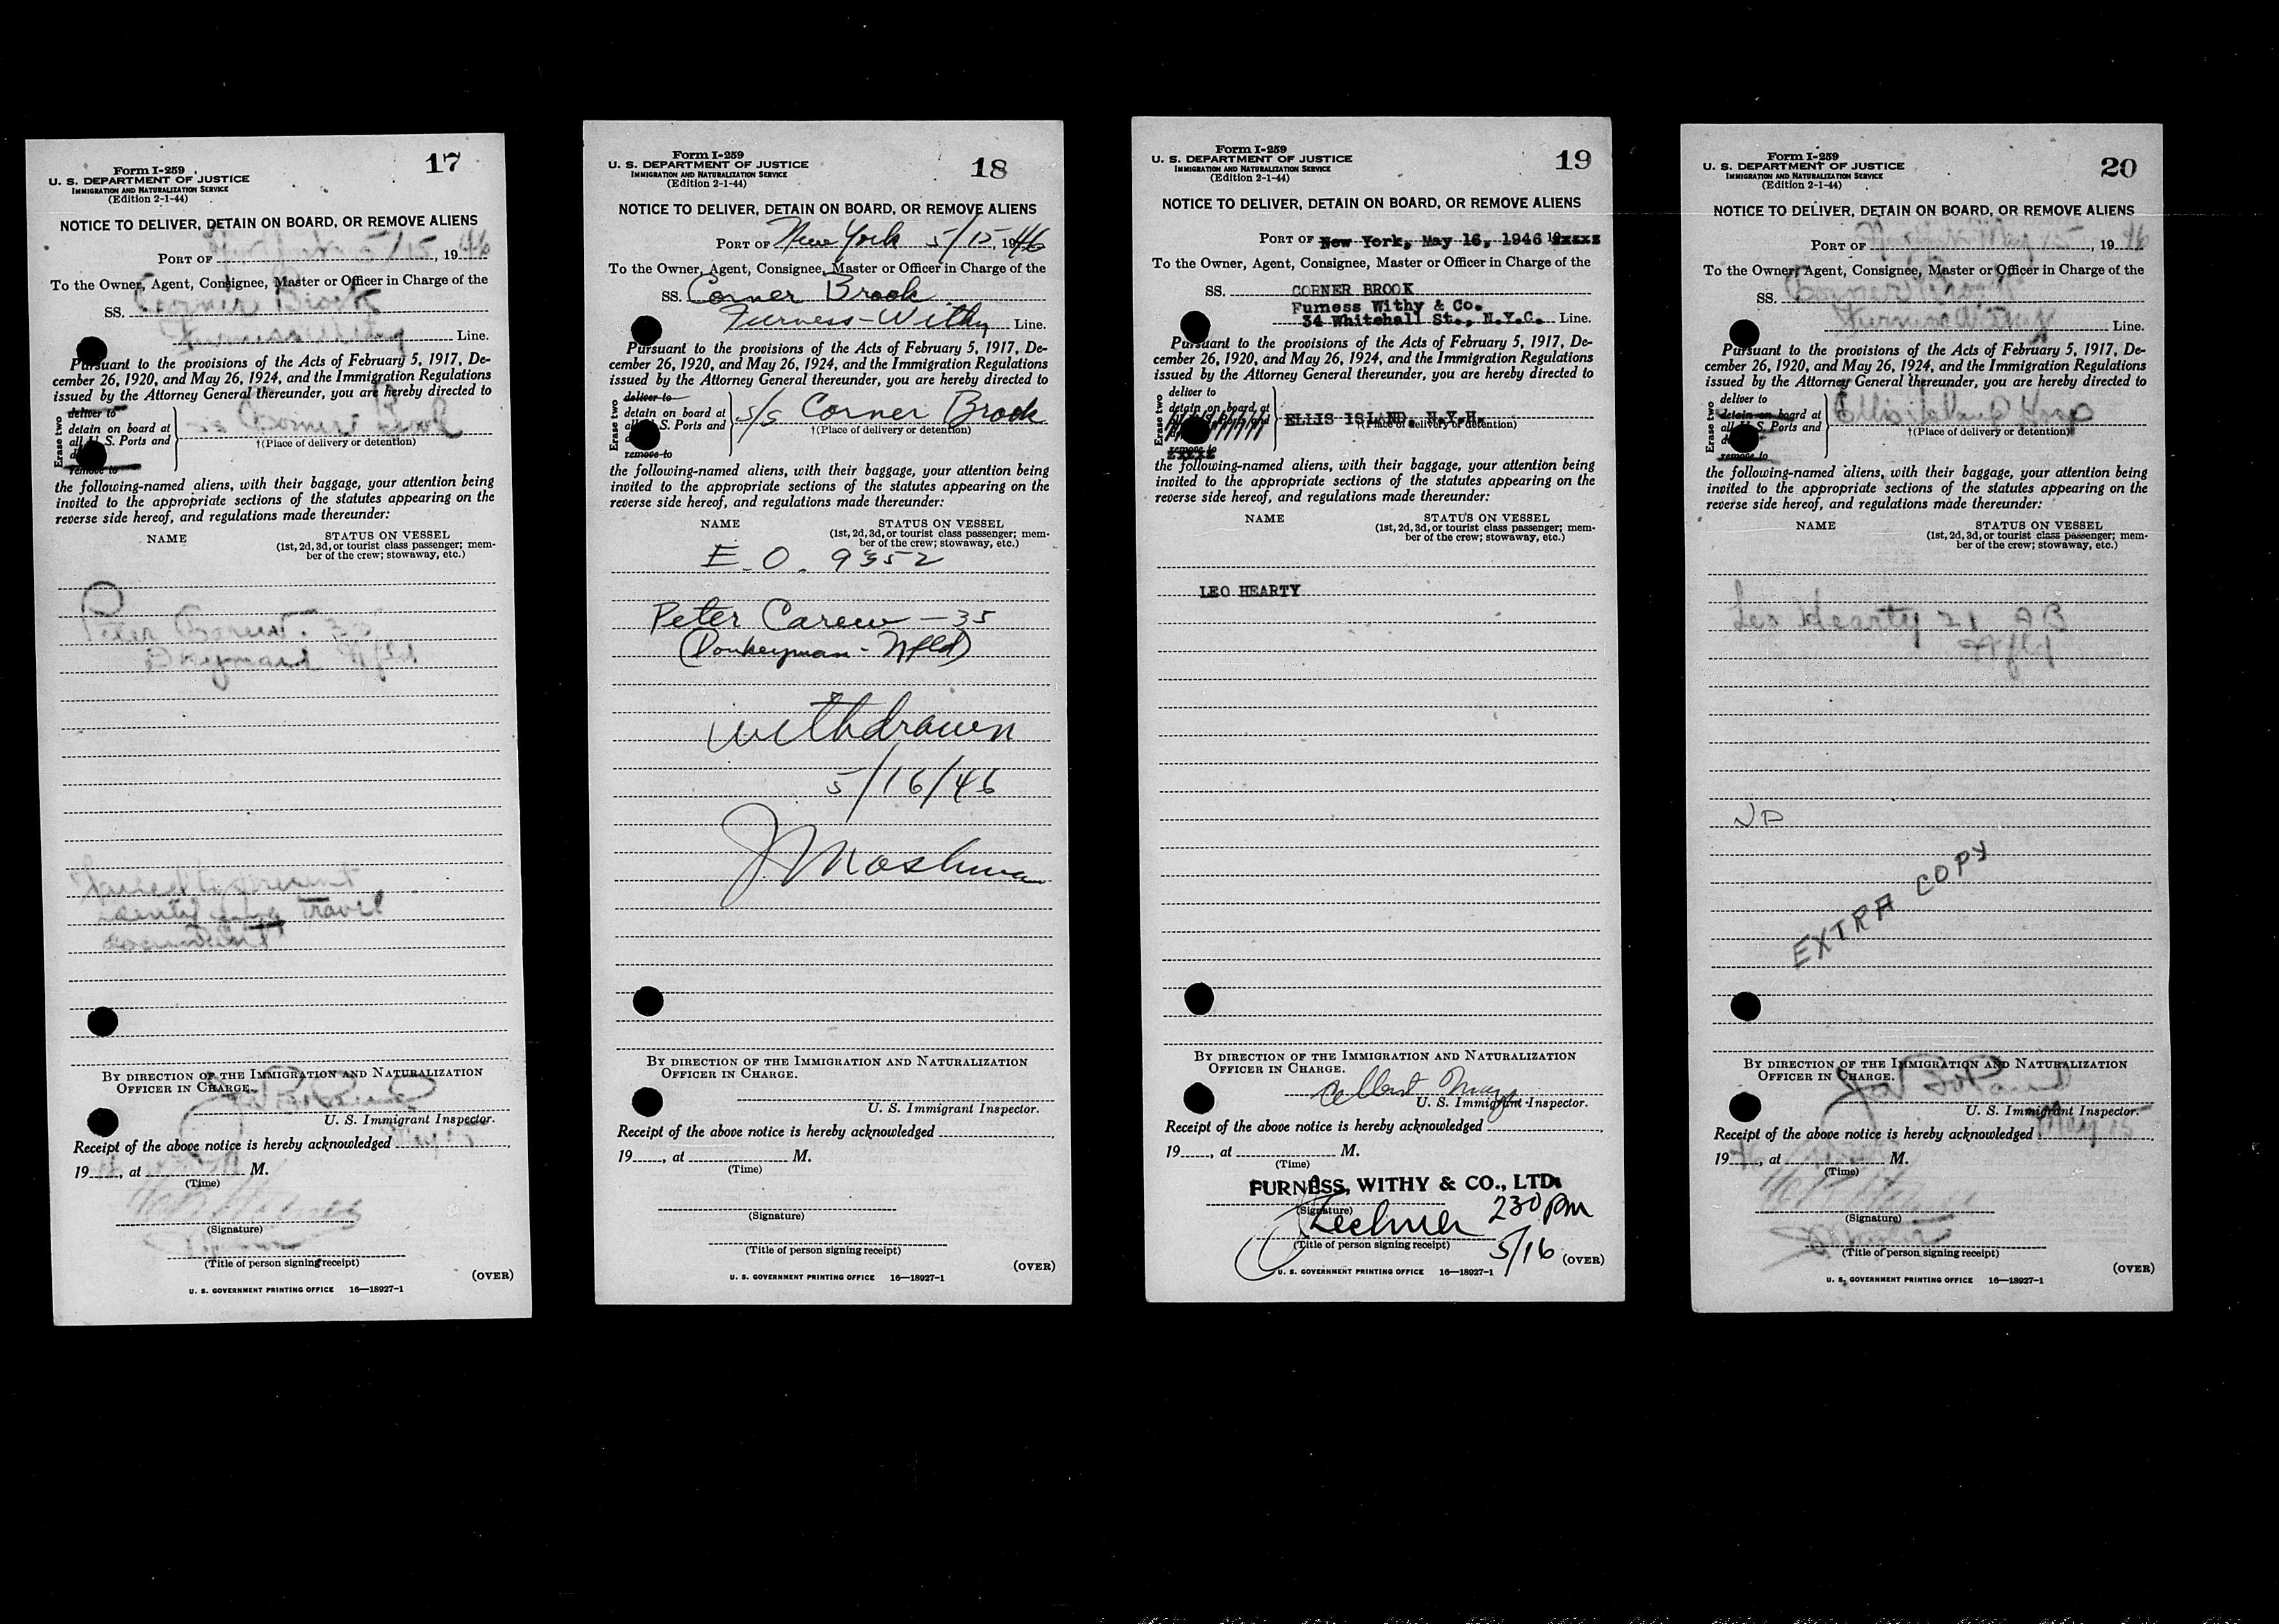 17
Form I-259
U. S. DEPARTMENT OF JUSTICE
IMMIGRATION AND NATURALIZATION SERVICE
(Edition 2-1-44)
NOTICE TO DELIVER, DETAIN ON BOARD, OR REMOVE ALIENS
PORT OF New York 5/15, 1946
To the Owner, Agent, Consignee, Master or Officer in Charge of the
SS. Corner Brook
Furness Withy Line.
Pursuant to the provisions of the Acts of February 5, 1917, De-
cember 26, 1920, and May 26, 1924, and the Immigration Regulations
issued by the Attorney General thereunder, you are hereby directed to
Erase two
deliver to
detain on board at
all U. S. Ports and
remove to
ss Corner Brook
†(Place of delivery or detention)
the following-named aliens, with their baggage, your attention being
invited to the appropriate sections of the statutes appearing on the
reverse side hereof, and regulations made thereunder:
NAME STATUS ON VESSEL
(1st, 2d, 3d, or tourist class passenger; mem-
ber of the crew; stowaway, etc.)
Peter 35
Nfld
Failed to present
identifying travel
document
BY DIRECTION OF THE IMMIGRATION AND NATURALIZATION
OFFICER IN CHARGE.
U. S. Immigrant Inspector.
Receipt of the above notice is hereby acknowledged May 15,
19, at M.
(Time)
(Signature)
(Title of person signing receipt)
(OVER)
U. S. GOVERNMENT PRINTING OFFICE 16—18927-1
18
Form I-259
U. S. DEPARTMENT OF JUSTICE
IMMIGRATION AND NATURALIZATION SERVICE
(Edition 2-1-44)
NOTICE TO DELIVER, DETAIN ON BOARD, OR REMOVE ALIENS
PORT OF New York 5/15, 1946
To the Owner, Agent, Consignee, Master or Officer in Charge of the
SS. Corner Brook
Furness-Withy Line.
Pursuant to the provisions of the Acts of February 5, 1917, De-
cember 26, 1920, and May 26, 1924, and the Immigration Regulations
issued by the Attorney General thereunder, you are hereby directed to
Erase two
deliver to
detain on board at
all U. S. Ports and
remove to
s/s Corner Brook
†(Place of delivery or detention)
the following-named aliens, with their baggage, your attention being
invited to the appropriate sections of the statutes appearing on the
reverse side hereof, and regulations made thereunder:
NAME STATUS ON VESSEL
(1st, 2d, 3d, or tourist class passenger; mem-
ber of the crew; stowaway, etc.)
E. O. 9352
Peter Carew — 35
(Donkeyman - Nfld)
withdrawn
5/16/46
J Moshman
BY DIRECTION OF THE IMMIGRATION AND NATURALIZATION
OFFICER IN CHARGE.
U. S. Immigrant Inspector.
Receipt of the above notice is hereby acknowledged
19, at M.
(Time)
(Signature)
(Title of person signing receipt)
(OVER)
U. S. GOVERNMENT PRINTING OFFICE 16—18927-1
19
Form I-259
U. S. DEPARTMENT OF JUSTICE
IMMIGRATION AND NATURALIZATION SERVICE
(Edition 2-1-44)
NOTICE TO DELIVER, DETAIN ON BOARD, OR REMOVE ALIENS
PORT OF New York, May 16, 1946 19xxxx
To the Owner, Agent, Consignee, Master or Officer in Charge of the
SS. CORNER BROOK
Furness Withy & Co.
34 Whitehall St., N.Y.C. Line.
Pursuant to the provisions of the Acts of February 5, 1917, De-
cember 26, 1920, and May 26, 1924, and the Immigration Regulations
issued by the Attorney General thereunder, you are hereby directed to
Erase two
deliver to
detain on board at
all U. S. Ports and
remove to
ELLIS ISLAND, N.Y.H.
†(Place of delivery or detention)
the following-named aliens, with their baggage, your attention being
invited to the appropriate sections of the statutes appearing on the
reverse side hereof, and regulations made thereunder:
NAME STATUS ON VESSEL
(1st, 2d, 3d, or tourist class passenger; mem-
ber of the crew; stowaway, etc.)
LEO HEARTY
BY DIRECTION OF THE IMMIGRATION AND NATURALIZATION
OFFICER IN CHARGE.
Albert
U. S. Immigrant Inspector.
Receipt of the above notice is hereby acknowledged
19, at M.
(Time)
FURNESS, WITHY & CO., LTD.
(Signature)
230 pm
(Title of person signing receipt)
5/16
(OVER)
U. S. GOVERNMENT PRINTING OFFICE 16—18927-1
20
Form I-259
U. S. DEPARTMENT OF JUSTICE
IMMIGRATION AND NATURALIZATION SERVICE
(Edition 2-1-44)
NOTICE TO DELIVER, DETAIN ON BOARD, OR REMOVE ALIENS
PORT OF May 15, 1946
To the Owner, Agent, Consignee, Master or Officer in Charge of the
SS. Corner Brook
Furness Withy Line.
Pursuant to the provisions of the Acts of February 5, 1917, De-
cember 26, 1920, and May 26, 1924, and the Immigration Regulations
issued by the Attorney General thereunder, you are hereby directed to
Erase two
deliver to
detain on board at
all U. S. Ports and
remove to
Ellis Island Hosp
†(Place of delivery or detention)
the following-named aliens, with their baggage, your attention being
invited to the appropriate sections of the statutes appearing on the
reverse side hereof, and regulations made thereunder:
NAME STATUS ON VESSEL
(1st, 2d, 3d, or tourist class passenger; mem-
ber of the crew; stowaway, etc.)
Leo Hearty 21 AB
Nfld
VD
EXTRA COPY
BY DIRECTION OF THE IMMIGRATION AND NATURALIZATION
OFFICER IN CHARGE.
U. S. Immigrant Inspector.
Receipt of the above notice is hereby acknowledged May 15,
1946, at M.
(Time)
(Signature)
(Title of person signing receipt)
(OVER)
U. S. GOVERNMENT PRINTING OFFICE 16—18927-1